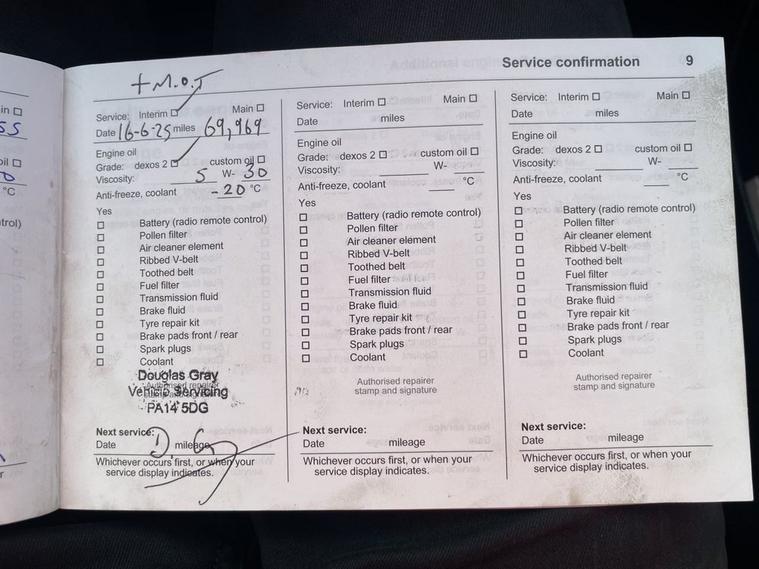 Service confirmation 9
+ M.O.T
Service: Interim ☐ Main ☐
Date 16-6-25 miles 69,969
Engine oil
Grade: dexos 2 ☐ custom oil ☐
Viscosity: 5 W- 30
Anti-freeze, coolant -20 °C
Yes
☐ Battery (radio remote control)
☐ Pollen filter
☐ Air cleaner element
☐ Ribbed V-belt
☐ Toothed belt
☐ Fuel filter
☐ Transmission fluid
☐ Brake fluid
☐ Tyre repair kit
☐ Brake pads front / rear
☐ Spark plugs
☐ Coolant
Douglas Gray
Authorised repairer
Vehicle Servicing
stamp and signature
PA14 5DG
Next service:
Date mileage
D. G
Whichever occurs first, or when your
service display indicates.
Service: Interim ☐ Main ☐
Date miles
Engine oil
Grade: dexos 2 ☐ custom oil ☐
Viscosity: W-
Anti-freeze, coolant °C
Yes
☐ Battery (radio remote control)
☐ Pollen filter
☐ Air cleaner element
☐ Ribbed V-belt
☐ Toothed belt
☐ Fuel filter
☐ Transmission fluid
☐ Brake fluid
☐ Tyre repair kit
☐ Brake pads front / rear
☐ Spark plugs
☐ Coolant
Authorised repairer
stamp and signature
Next service:
Date mileage
Whichever occurs first, or when your
service display indicates.
Service: Interim ☐ Main ☐
Date miles
Engine oil
Grade: dexos 2 ☐ custom oil ☐
Viscosity: W-
Anti-freeze, coolant °C
Yes
☐ Battery (radio remote control)
☐ Pollen filter
☐ Air cleaner element
☐ Ribbed V-belt
☐ Toothed belt
☐ Fuel filter
☐ Transmission fluid
☐ Brake fluid
☐ Tyre repair kit
☐ Brake pads front / rear
☐ Spark plugs
☐ Coolant
Authorised repairer
stamp and signature
Next service:
Date mileage
Whichever occurs first, or when your
service display indicates.